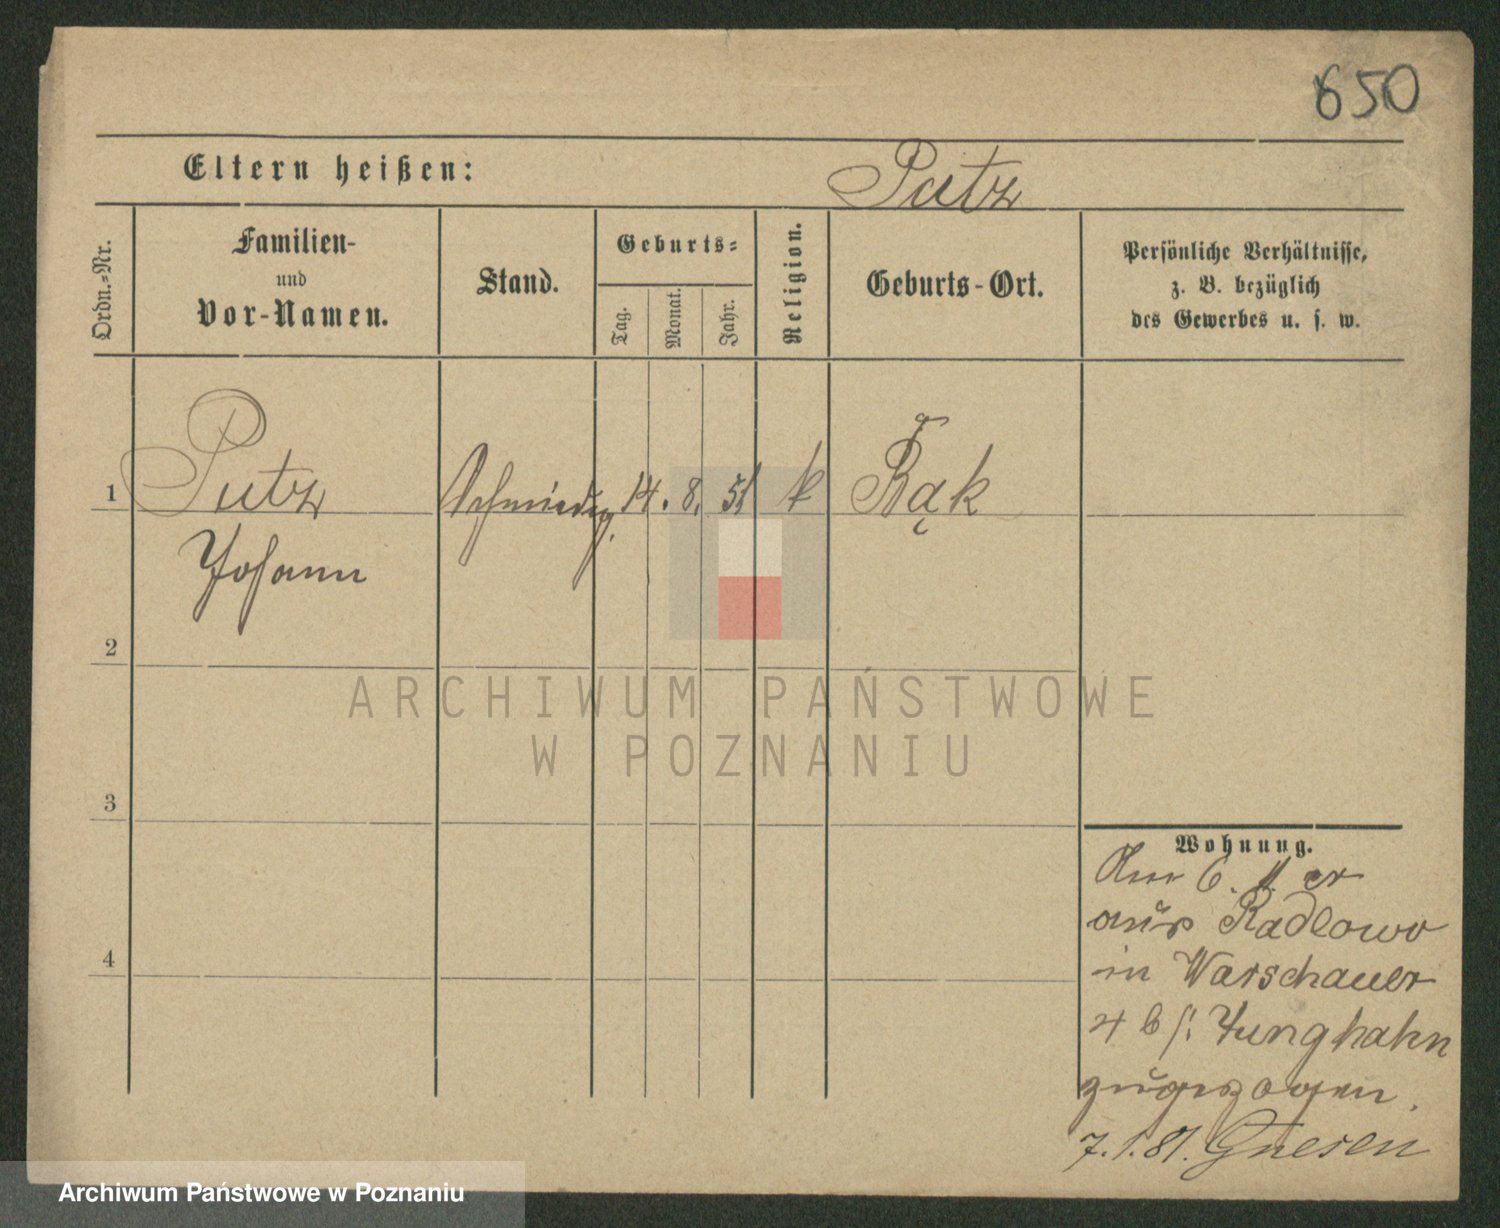 650
Eltern heißen:
Putz
Ordn.-Nr.
Familien-
und
Vor-Namen.
Stand.
Geburts-
Tag.
Monat.
Jahr.
Religion.
Geburts-Ort.
Persönliche Verhältnisse,
z. B. bezüglich
des Gewerbes u. s. w.
1 Putz 14. 8. 51 k Bąk
Johann
2
3
4
Wohnung.
Am 6. 11 cr
aus Radlowo
in Warschauer
4 b/: Junghahn
zugezogen.
7.1.81. Gnesen
ARCHIWUM PAŃSTWOWE
W POZNANIU
Archiwum Państwowe w Poznaniu